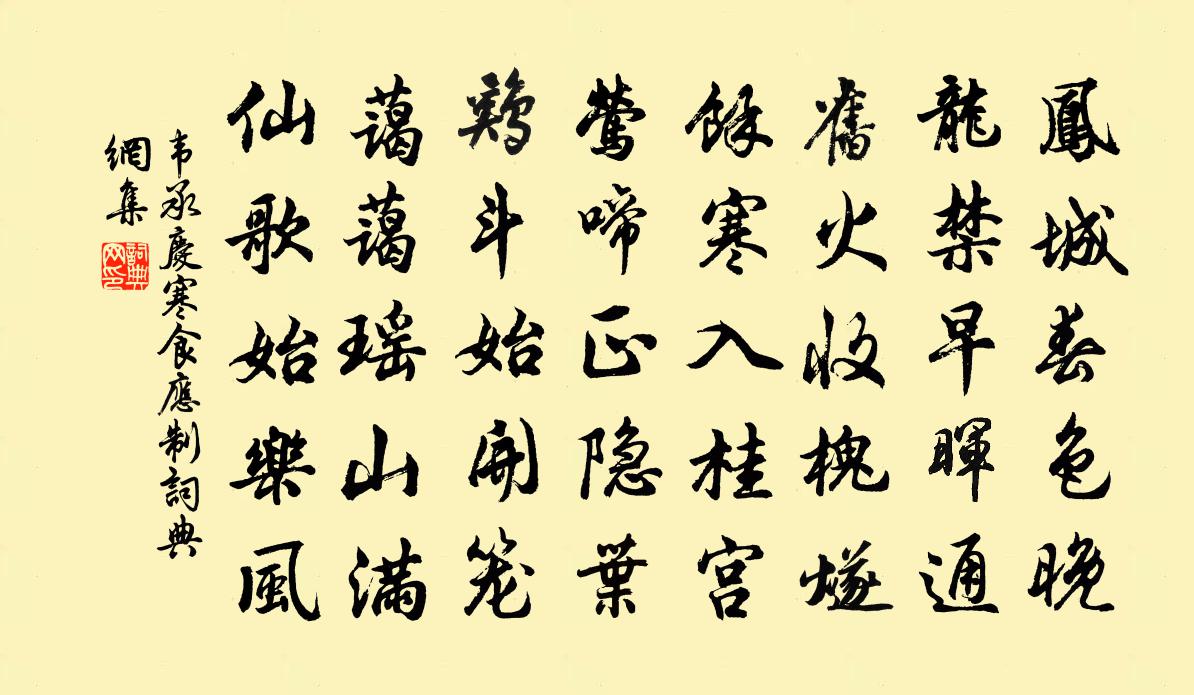 鳳城春色晚
龍禁早暉通
舊火收槐燧
餘寒入桂宮
鶯啼正隐葉
鷄斗始開笼
藹藹瑶山满
仙歌始樂風
韦承慶寒食應制詞典
網集
詞典
网印